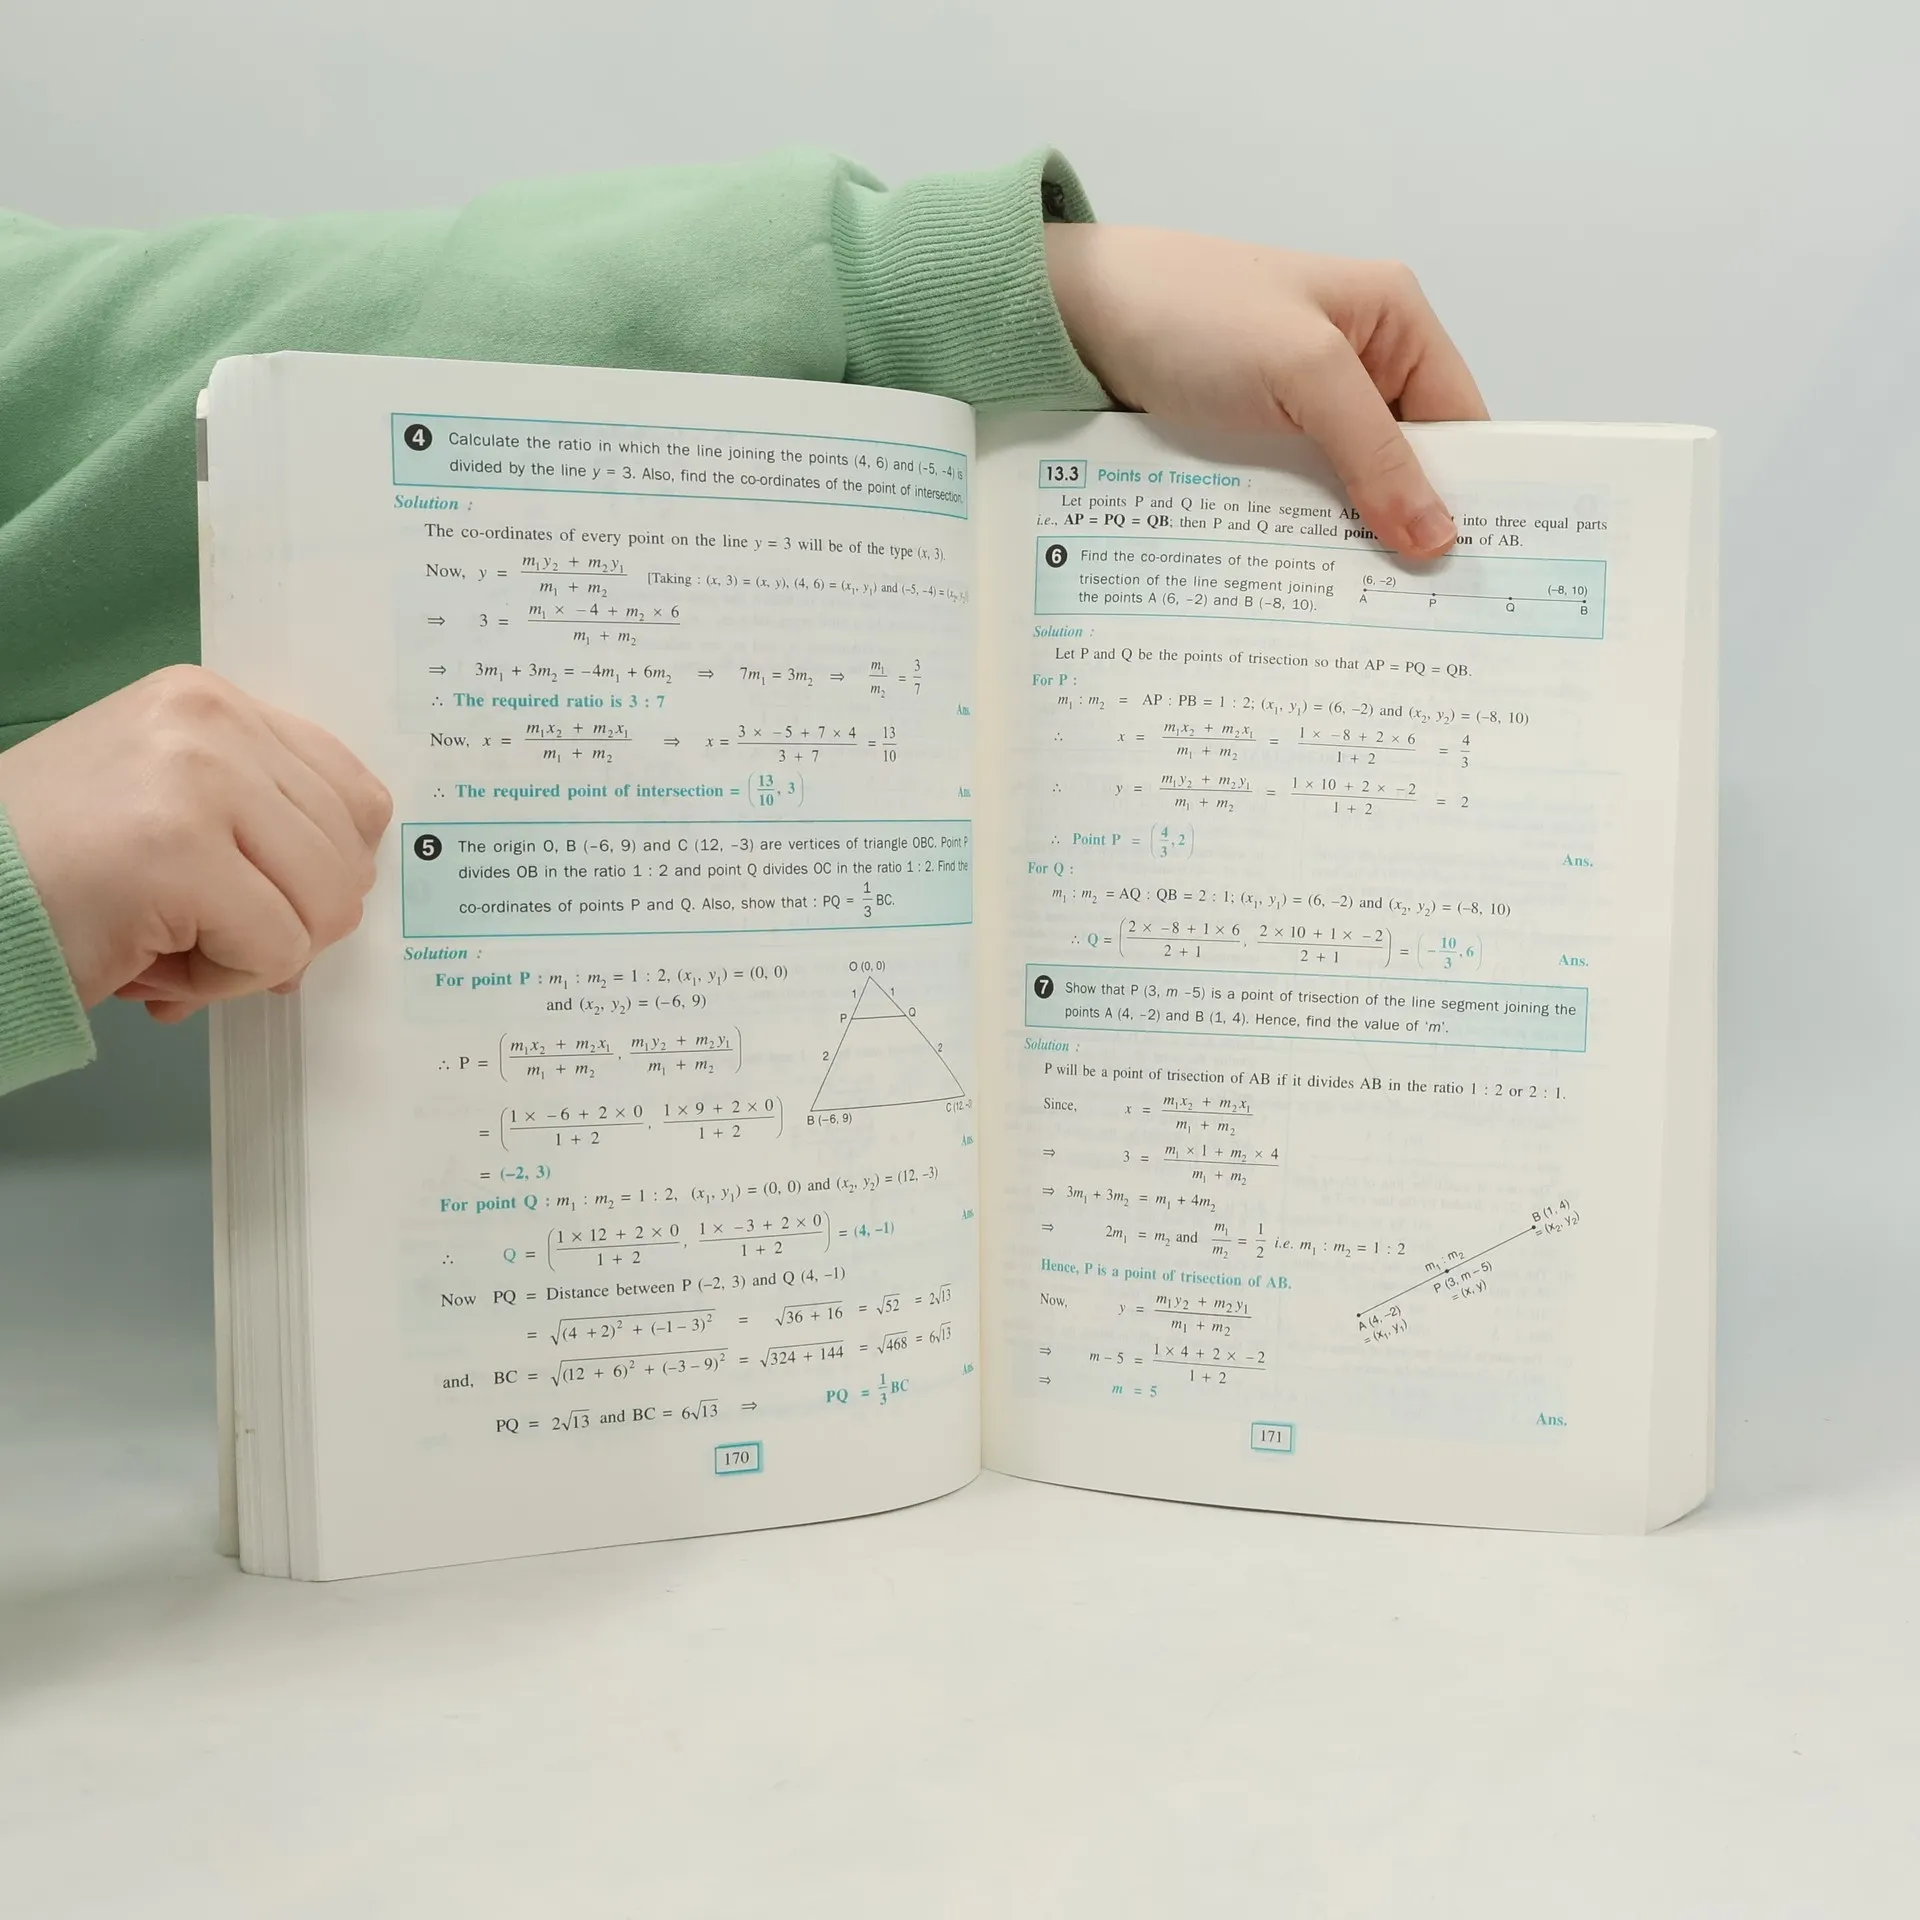 4 Calculate the ratio in which the line joining the points (4, 6) and (-5, -4) is
divided by the line y = 3. Also, find the co-ordinates of the point of intersection.
Solution :
The co-ordinates of every point on the line y = 3 will be of the type (x, 3).
Now, y = (m₁y₂ + m₂y₁)/(m₁ + m₂) [Taking : (x, 3) = (x, y), (4, 6) = (x₁, y₁) and (–5, –4) = (x₂, y₂)]
⇒ 3 = (m₁ × –4 + m₂ × 6)/(m₁ + m₂)
⇒ 3m₁ + 3m₂ = –4m₁ + 6m₂ ⇒ 7m₁ = 3m₂ ⇒ m₁/m₂ = 3/7
∴ The required ratio is 3 : 7 Ans.
Now, x = (m₁x₂ + m₂x₁)/(m₁ + m₂) ⇒ x = (3 × –5 + 7 × 4)/(3 + 7) = 13/10
∴ The required point of intersection = (13/10, 3) Ans.
5 The origin O, B (–6, 9) and C (12, –3) are vertices of triangle OBC. Point P
divides OB in the ratio 1 : 2 and point Q divides OC in the ratio 1 : 2. Find the
co-ordinates of points P and Q. Also, show that : PQ = 1/3 BC.
Solution :
For point P : m₁ : m₂ = 1 : 2, (x₁, y₁) = (0, 0)
and (x₂, y₂) = (–6, 9)
∴ P = ((m₁x₂ + m₂x₁)/(m₁ + m₂), (m₁y₂ + m₂y₁)/(m₁ + m₂))
= ((1 × –6 + 2 × 0)/(1 + 2), (1 × 9 + 2 × 0)/(1 + 2))
= (–2, 3) Ans
O (0, 0)
1 1
P Q
2 2
B (–6, 9) C (12, –3
For point Q : m₁ : m₂ = 1 : 2, (x₁, y₁) = (0, 0) and (x₂, y₂) = (12, –3)
∴ Q = ((1 × 12 + 2 × 0)/(1 + 2), (1 × –3 + 2 × 0)/(1 + 2)) = (4, –1) Ans
Now PQ = Distance between P (–2, 3) and Q (4, –1)
= √((4 + 2)² + (–1 – 3)²) = √(36 + 16) = √52 = 2√13
and, BC = √((12 + 6)² + (–3 – 9)²) = √(324 + 144) = √468 = 6√13
PQ = 2√13 and BC = 6√13 ⇒ PQ = 1/3 BC Ans
170
13.3 Points of Trisection :
Let points P and Q lie on line segment AB into three equal parts
i.e., AP = PQ = QB; then P and Q are called of AB.
6 Find the co-ordinates of the points of
trisection of the line segment joining
the points A (6, –2) and B (–8, 10).
(6, –2) (–8, 10)
A P Q B
Solution :
Let P and Q be the points of trisection so that AP = PQ = QB.
For P :
m₁ : m₂ = AP : PB = 1 : 2; (x₁, y₁) = (6, –2) and (x₂, y₂) = (–8, 10)
∴ x = (m₁x₂ + m₂x₁)/(m₁ + m₂) = (1 × –8 + 2 × 6)/(1 + 2) = 4/3
∴ y = (m₁y₂ + m₂y₁)/(m₁ + m₂) = (1 × 10 + 2 × –2)/(1 + 2) = 2
∴ Point P = (4/3, 2) Ans.
For Q :
m₁ : m₂ = AQ : QB = 2 : 1; (x₁, y₁) = (6, –2) and (x₂, y₂) = (–8, 10)
∴ Q = ((2 × –8 + 1 × 6)/(2 + 1), (2 × 10 + 1 × –2)/(2 + 1)) = (–10/3, 6) Ans.
7 Show that P (3, m –5) is a point of trisection of the line segment joining the
points A (4, –2) and B (1, 4). Hence, find the value of 'm'.
Solution :
P will be a point of trisection of AB if it divides AB in the ratio 1 : 2 or 2 : 1.
Since, x = (m₁x₂ + m₂x₁)/(m₁ + m₂)
⇒ 3 = (m₁ × 1 + m₂ × 4)/(m₁ + m₂)
⇒ 3m₁ + 3m₂ = m₁ + 4m₂
⇒ 2m₁ = m₂ and m₁/m₂ = 1/2 i.e. m₁ : m₂ = 1 : 2
Hence, P is a point of trisection of AB.
Now, y = (m₁y₂ + m₂y₁)/(m₁ + m₂)
⇒ m – 5 = (1 × 4 + 2 × –2)/(1 + 2)
⇒ m = 5
B (1, 4)
= (x₂, y₂)
m₁ : m₂
P (3, m – 5)
= (x, y)
A (4, –2)
= (x₁, y₁)
Ans.
171